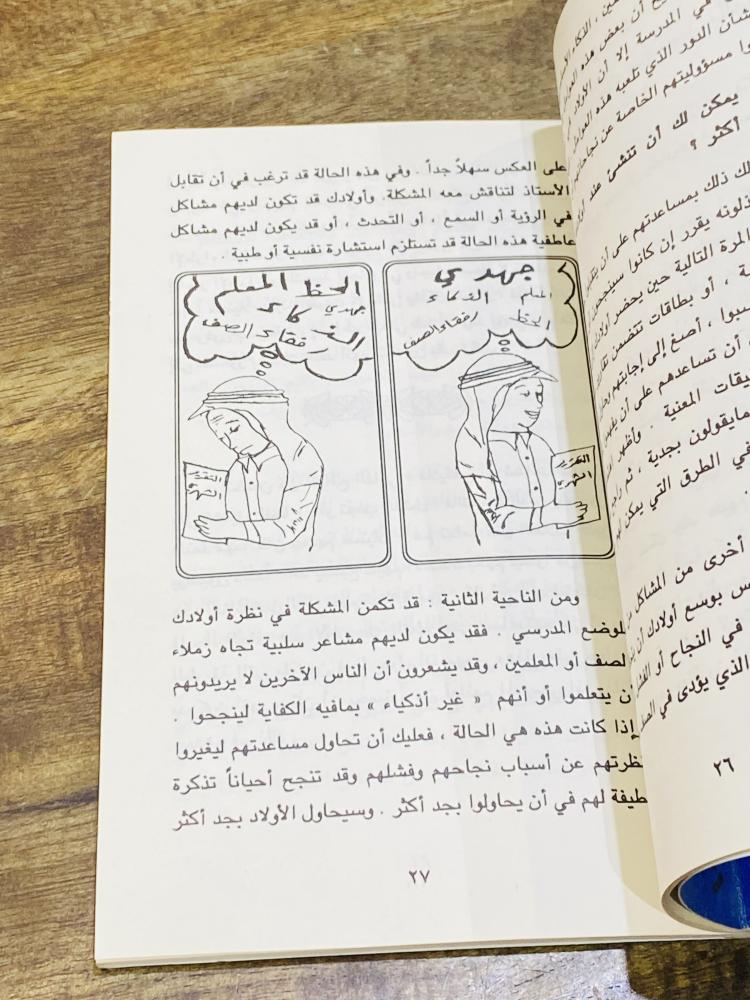 على العكس سهلاً جداً . وفي هذه الحالة قد ترغب في أن تقابل
الأستاذ لتناقش معه المشكلة. وأولادك قد تكون لديهم مشاكل
في الرؤية أو السمع ، أو التحدث ، أو قد يكون لديهم مشاكل
عاطفية هذه الحالة قد تستلزم استشارة نفسية أو طبية .
جهدي
المعلم الذكاء
الحظ
رفقاء الصف
التقرير
الشهري
الحظ المعلم
جهدي
الذكاء
رفقاء الصف
ومن الناحية الثانية : قد تكمن المشكلة في نظرة أولادك
للوضع المدرسي . فقد يكون لديهم مشاعر سلبية تجاه زملاء
الصف أو المعلمين ، وقد يشعرون أن الناس الآخرين لا يريدونهم
أن يتعلموا أو أنهم « غير أذكياء » بمافيه الكفاية لينجحوا .
إذا كانت هذه هي الحالة ، فعليك أن تحاول مساعدتهم ليغيروا
نظرتهم عن أسباب نجاحهم وفشلهم وقد تنجح أحياناً تذكرة
لطيفة لهم في أن يحاولوا بجد أكثر . وسيحاول الأولاد بجد أكثر
٢٧
في المدرسة إلا أن الأولاد
بشأن الدور الذي تلعبه هذه العوامل
مسؤوليتهم الخاصة عن نجاحاتهم
يمكن لك أن تنشئ عند
أكثر ؟
ذلك بمساعدتهم على أن
يقرر إن كانوا سينجحون
المرة التالية حين يحضر أولادك
، أو بطاقات تتضمن
، أصغ إلى إجاباتهم
أن تساعدهم على أن
المعنية . وأظهر
مايقولون بجدية ، ثم
في الطرق التي يمكن
أخرى من المشاكل
بوسع أولادك أن
في النجاح أو الفشل
الذي يؤدى في
٢٦